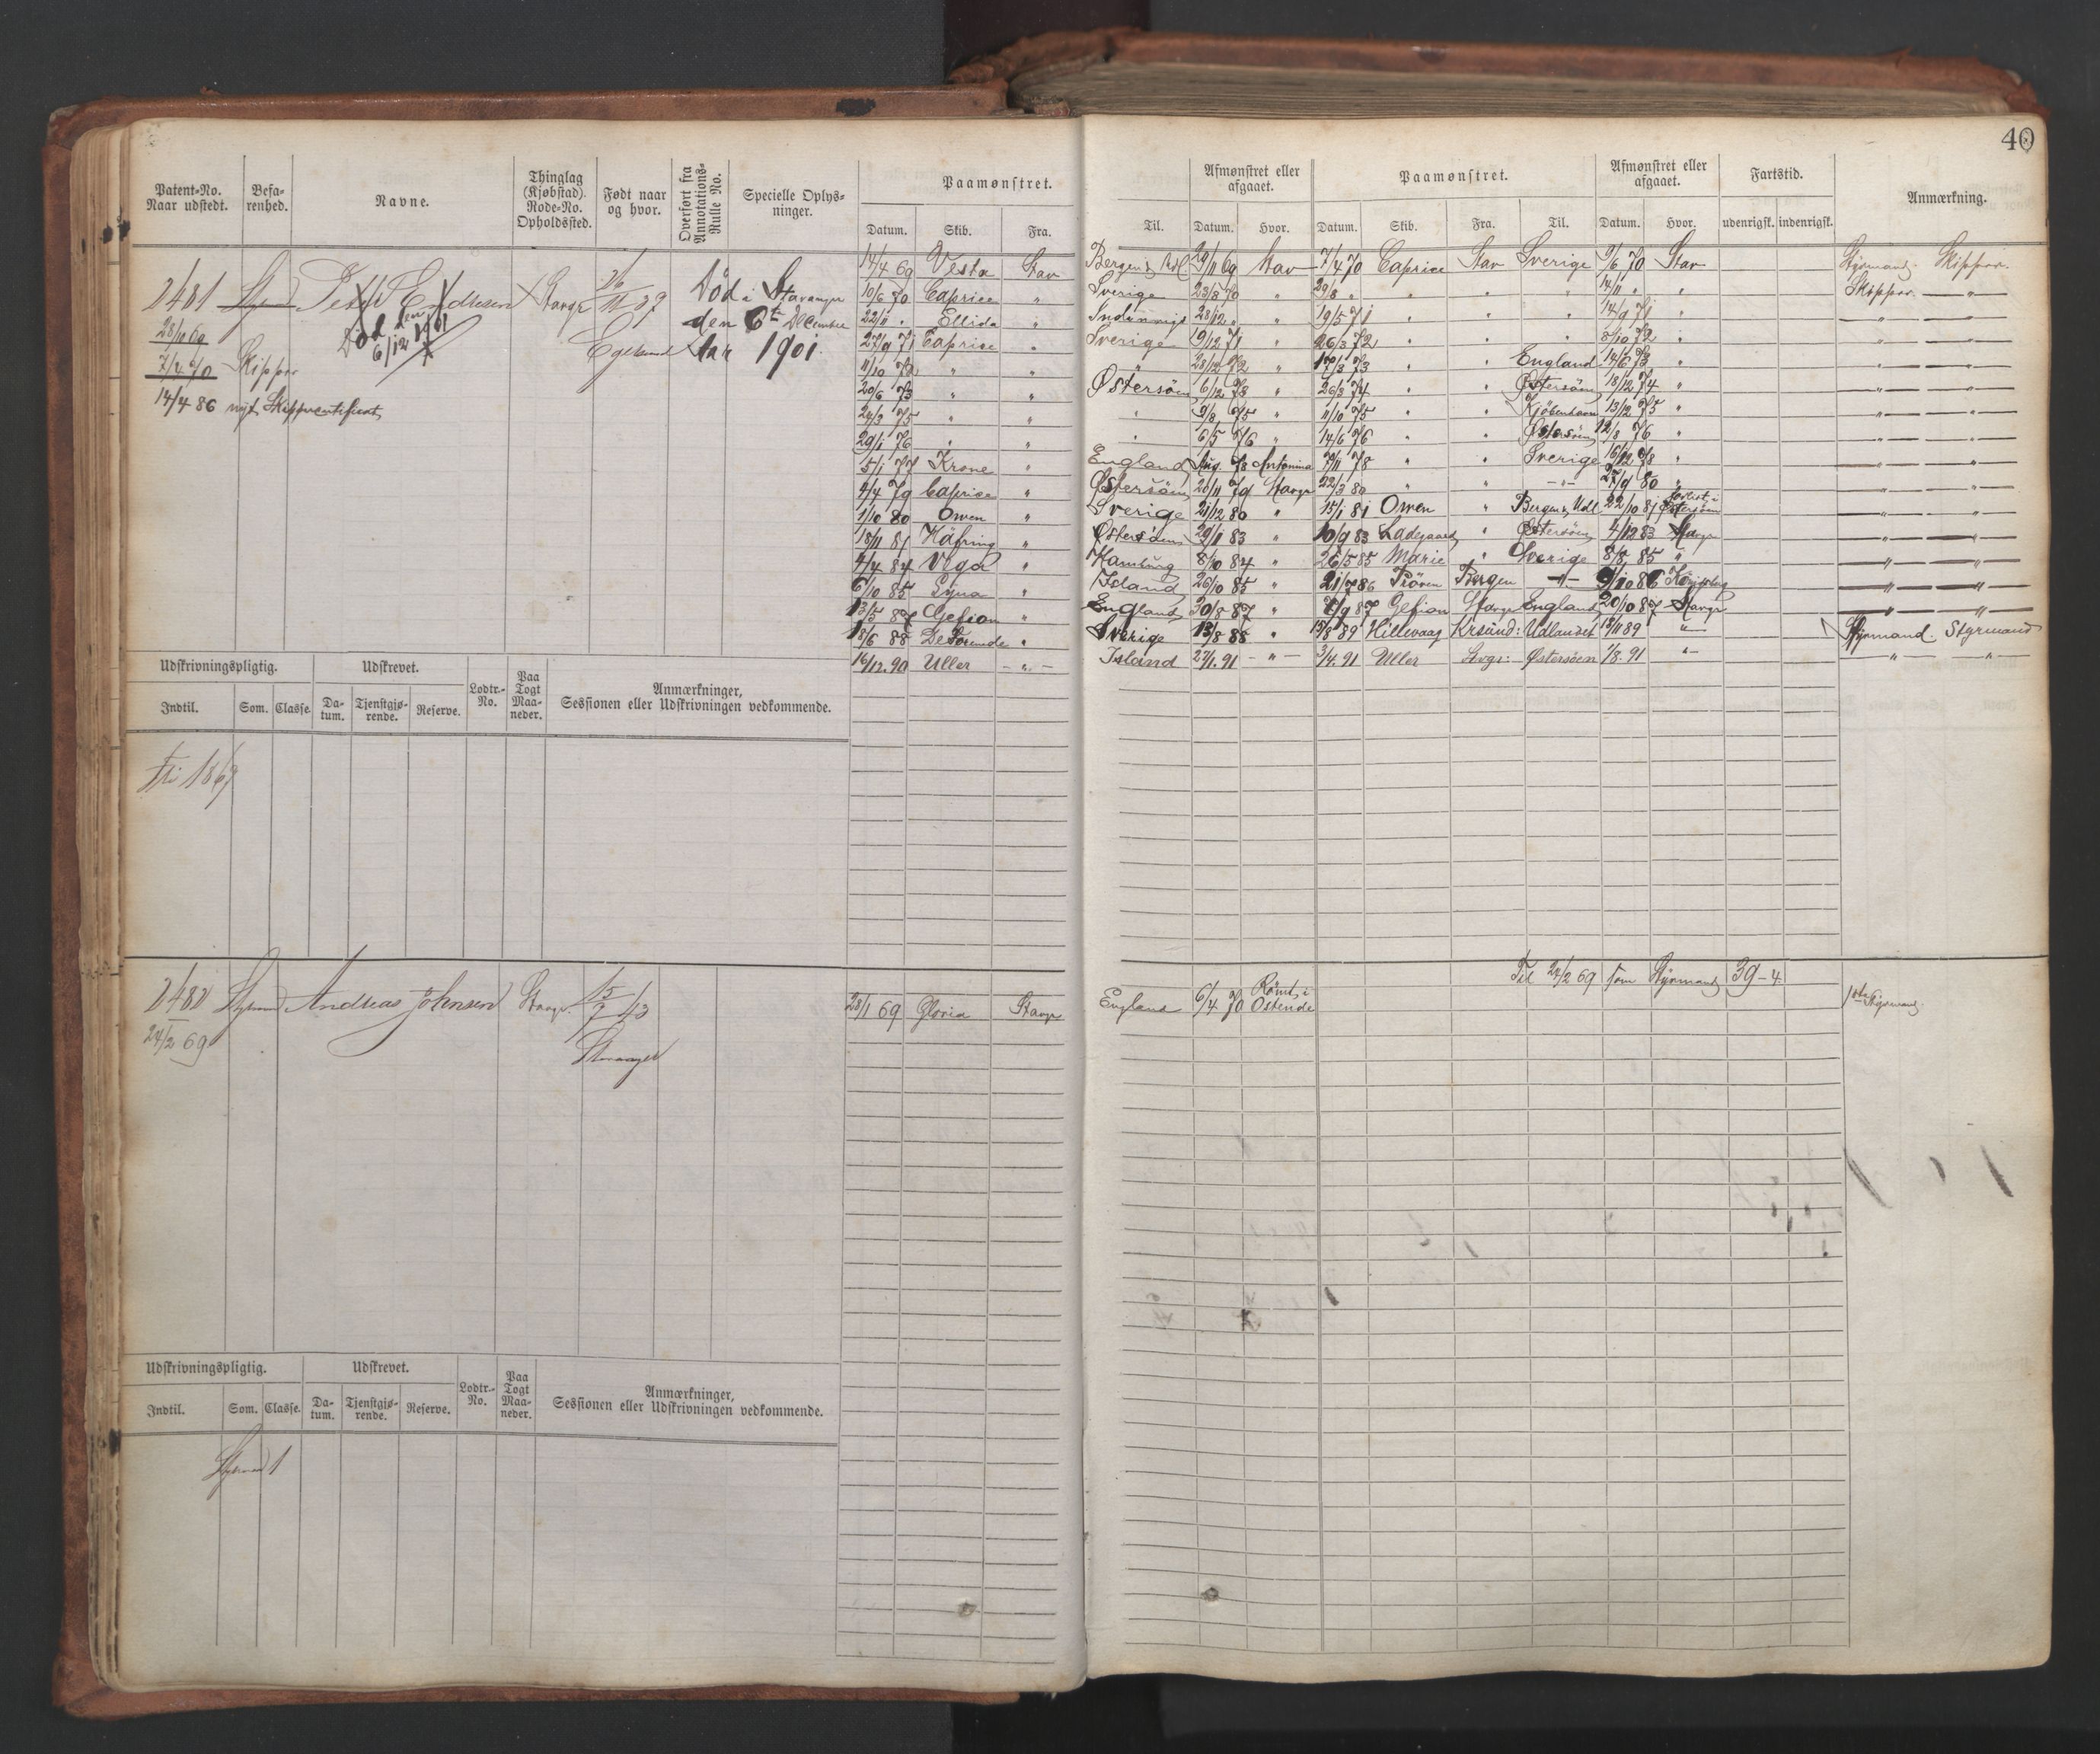 40
Patent-No. Naar udstedt. Befa-renhed. Navne. Thinglag (Kjøbstad). Rode-No. Opholdssted. Født naar og hvor. Overført fra Annotations-Rulle No. Specielle Oplys-ninger. Paamønstret. Afmønstret eller afgaaet. Paamønstret. Afmønstret eller afgaaet. Fartstid. Anmærkning.
Datum. Skib. Fra. Til. Datum. Hvor. Datum. Skib. Fra. Til. Datum. Hvor. udenrigsk. indenrigsk.
2481 Endresen Stavgr 26/11 39
28/11 69
7/4 70 Skipper
14/4 86 nyt Skippercertificat
Død den 6/12 1901
Egersund
Død i Stavanger
den 6te December
1901.
14/4 69 Vesta Stav Bergen 29/11 69 Stav 7/4 70 Caprice Stav Sverige 9/6 70 Stav Styrmand. Skipper.
10/6 70 Caprice " Sverige 23/8 70 " 29/8 " " " " 14/11 " " Skipper — " —
22/11 " Ellida " 28/12 " " 19/5 71 " " " 14/9 71 " — " — " —
27/9 71 Caprice " Sverige 9/12 71 " 26/3 72 " " " 8/10 72 " — " — " —
11/10 72 " " " 23/12 72 " 17/3 73 " " England 14/6 73 " — " — " —
20/6 73 " " Østersöen 6/12 73 " 26/3 74 " " Østersöen 18/12 74 " — " — " —
24/3 75 " " " 9/8 75 " 11/10 75 " " Kjöbenhavn 13/12 75 " — " — " —
29/1 76 " " " 6/5 76 " 14/6 76 " " Østersöen 12/8 76 " — " — " —
5/1 77 Krone " England Aug. 78 Antonina 7/11 78 " " Sverige 16/12 78 " — " — " —
4/4 79 Caprice " Østersöen 26/11 79 Stavgr 22/3 80 " " — " — 27/9 80 " — " — " —
1/10 80 Owen " Sverige 21/12 80 " 15/1 81 Owen " Bergen & Udl 22/10 81 forlist i Østersöen — " — " —
18/11 81 Häfring " Østersöen 29/11 83 " 10/9 83 Ladegaard " Østersöen 4/12 83 Stavgr — " — " —
4/4 84 Vega " Hamburg 8/10 84 " 26/5 85 Marie " Sverige 8/8 85 " — " — " —
6/10 85 Lyna " Island 26/10 85 " 21/7 86 Pröven Bergen — " — 9/10 86 — " — " —
13/5 87 Gefion " England 30/8 87 " 7/9 87 Gefion Stavgr England 20/10 87 Stavgr — " — " —
18/6 88 De Forende " Sverige 13/8 88 " 15/8 89 Hillevaag Krsund: Udlandet 15/11 89 " Styrmand. Styrmand
16/12.90 Uller — " — Island 27/1.91 — " — 3/4.91 Uller Svgr: Østersöen 1/8.91 " " — " —
Udskrivningspligtig. Udskrevet. Lodtr.-No. Paa Togt Maa-neder. Anmærkninger, Sessionen eller Udskrivningen vedkommende.
Indtil. Som. Classe. Da-tum. Tjenstgjø-rende. Reserve.
fri 1869
Til 24/2 69 som Styrmand 39-4
2482 Styrmand Andreas Johnsen Stavgr. 15/9 43 28/1 69 Gloria Stavgr England 6/4 70 Römt i Ostende 1ste Styrmand.
24/2 69 Stavanger
Udskrivningspligtig. Udskrevet. Lodtr.-No. Paa Togt Maa-neder. Anmærkninger, Sessionen eller Udskrivningen vedkommende.
Indtil. Som. Classe. Da-tum. Tjenstgjø-rende. Reserve.
Styrmand 1